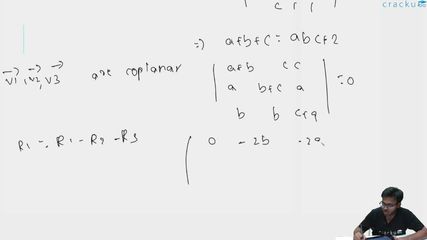 cracku
c 1 1
=> a+b+c = abc+2
v1, v2, v3 are coplanar
a+b c c
a b+c a = 0
b b c+a
R1 = R1 - R2 - R3
0 -2b -2a